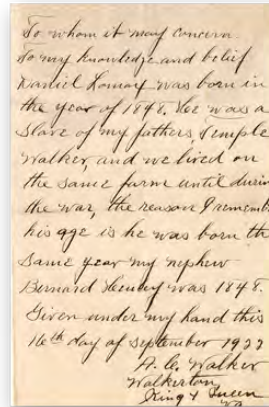 To whom it may concern
To my knowledge and belief
Daniel Lomax was born in
the year of 1848. He was a
Slave of my fathers, Temple
Walker, and we lived on
the same farm until durin
the war, the reason I rememb
his age is he was born the
same year my nephew
Bernard Henley was 1848.
Given under my hand this
16th day of September 1922
A. C. Walker
Walkerton
King & Queen
Va